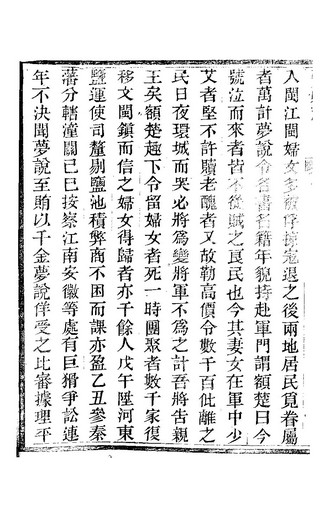 人閩江閩婦女多被俘掠寇退之後兩地居民覓眷屬
者萬計夢說令各書名籍年貌持赴軍門謂額楚曰今
號泣而來者皆不從賊之良民也今其妻女在軍中少
艾者堅不許贖老醜者又故勒高價令數千百仳離之
民日夜環城而哭必將為變將軍不為之計吾將告親
王矣額楚趣下令留婦女者死一時團聚者數千家復
移文閩鎮而信之婦女得歸者亦千餘人戊午陞河東
鹽運使司釐剔鹽池積弊商不困而課亦盈乙丑參秦
藩分轄潼關己巳按察江南安徽等處有巨猾爭訟連
年不決聞夢說至賄以千金夢說佯受之比審據理平